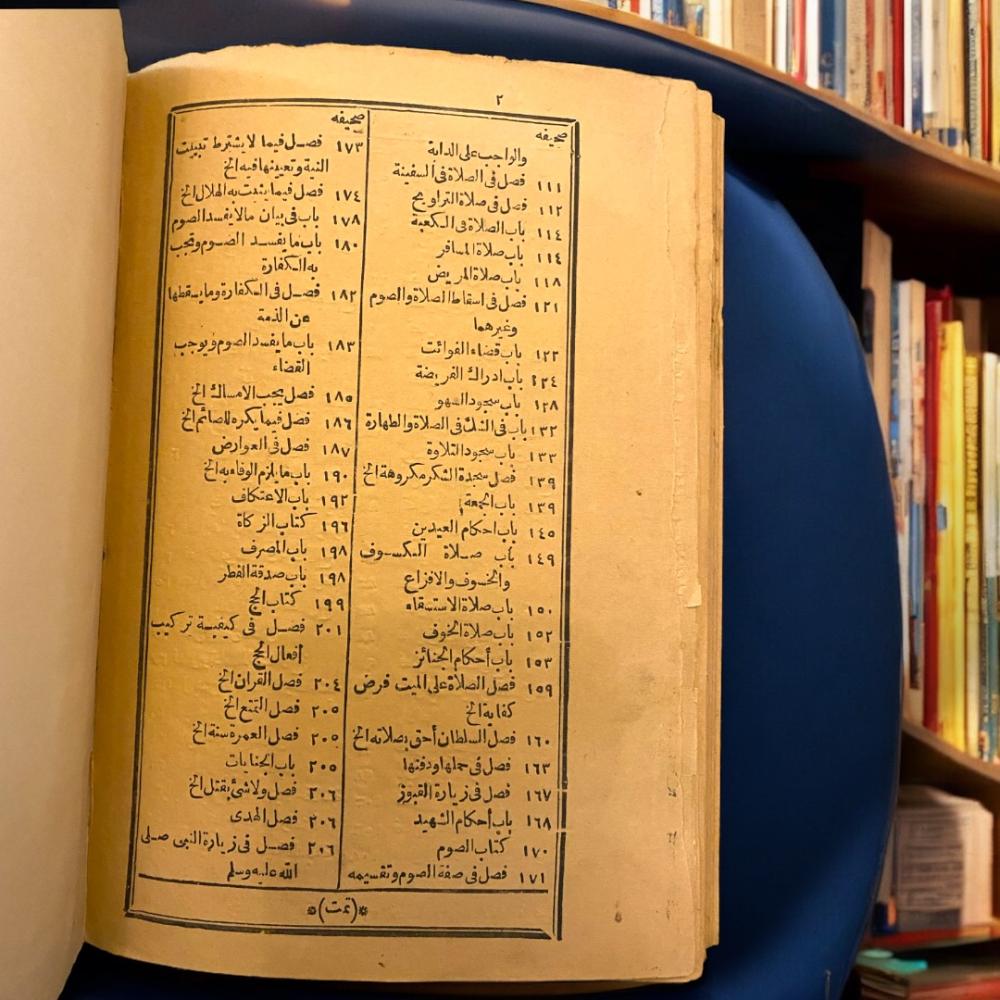 ٢
صحيفه
والواجب على الدابة
١١١ فصل فى الصلاة فى السفينة
١١٢ فصل فى صلاة التراويح
١١٤ باب الصلاة فى الكعبة
١١٤ باب صلاة المسافر
١١٨ باب صلاة المريض
١٢١ فصل فى اسقاط الصلاة والصوم
وغيرهما
١٢٢ باب قضاء الفوائت
١٢٤ باب ادراك الفريضة
١٢٨ باب سجود السهو
١٣٢ باب فى الشك فى الصلاة والطهارة
١٣٣ باب سجود التلاوة
١٣٩ فصل سجدة الشكر مكروهة الخ
١٣٩ باب الجمعة
١٤٥ باب احكام العيدين
١٤٩ باب صلاة الكسوف
والخسوف والافزاع
١٥٠ باب صلاة الاستسقاء
١٥٢ باب صلاة الخوف
١٥٣ باب أحكام الجنائز
١٥٩ فصل الصلاة على الميت فرض
كفاية الخ
١٦٠ فصل السلطان أحق بصلاته الخ
١٦٣ فصل فى حملها ودفنها
١٦٧ فصل فى زيارة القبور
١٦٨ باب أحكام الشهيد
١٧٠ كتاب الصوم
١٧١ فصل فى صفة الصوم وتقسيمه
صحيفه
١٧٣ فصل فيما لا يشترط تبييت
النية وتعيينها فيه الخ
١٧٤ فصل فيما يثبت به الهلال الخ
١٧٨ باب فى بيان مالا يفسد الصوم
١٨٠ باب ما يفسد الصوم وتجب
به الكفارة
١٨٢ فصل فى الكفارة وما يسقطها
عن الذمة
١٨٣ باب ما يفسد الصوم ويوجب
القضاء
١٨٥ فصل يجب الامساك الخ
١٨٦ فصل فيما يكره للصائم الخ
١٨٧ فصل فى العوارض
١٩٠ باب ما يلزم الوفاء به الخ
١٩٢ باب الاعتكاف
١٩٦ كتاب الزكاة
١٩٨ باب المصرف
١٩٨ باب صدقة الفطر
١٩٩ كتاب الحج
٢٠١ فصل فى كيفية تركيب
أفعال الحج
٢٠٤ فصل القران الخ
٢٠٥ فصل التمتع الخ
٢٠٥ فصل العمرة سنة الخ
٢٠٥ باب الجنايات
٢٠٦ فصل ولا شئ بقتل الخ
٢٠٦ فصل الهدى
٢٠٦ فصل فى زيارة النبى صلى
الله عليه وسلم
*(تمت)*